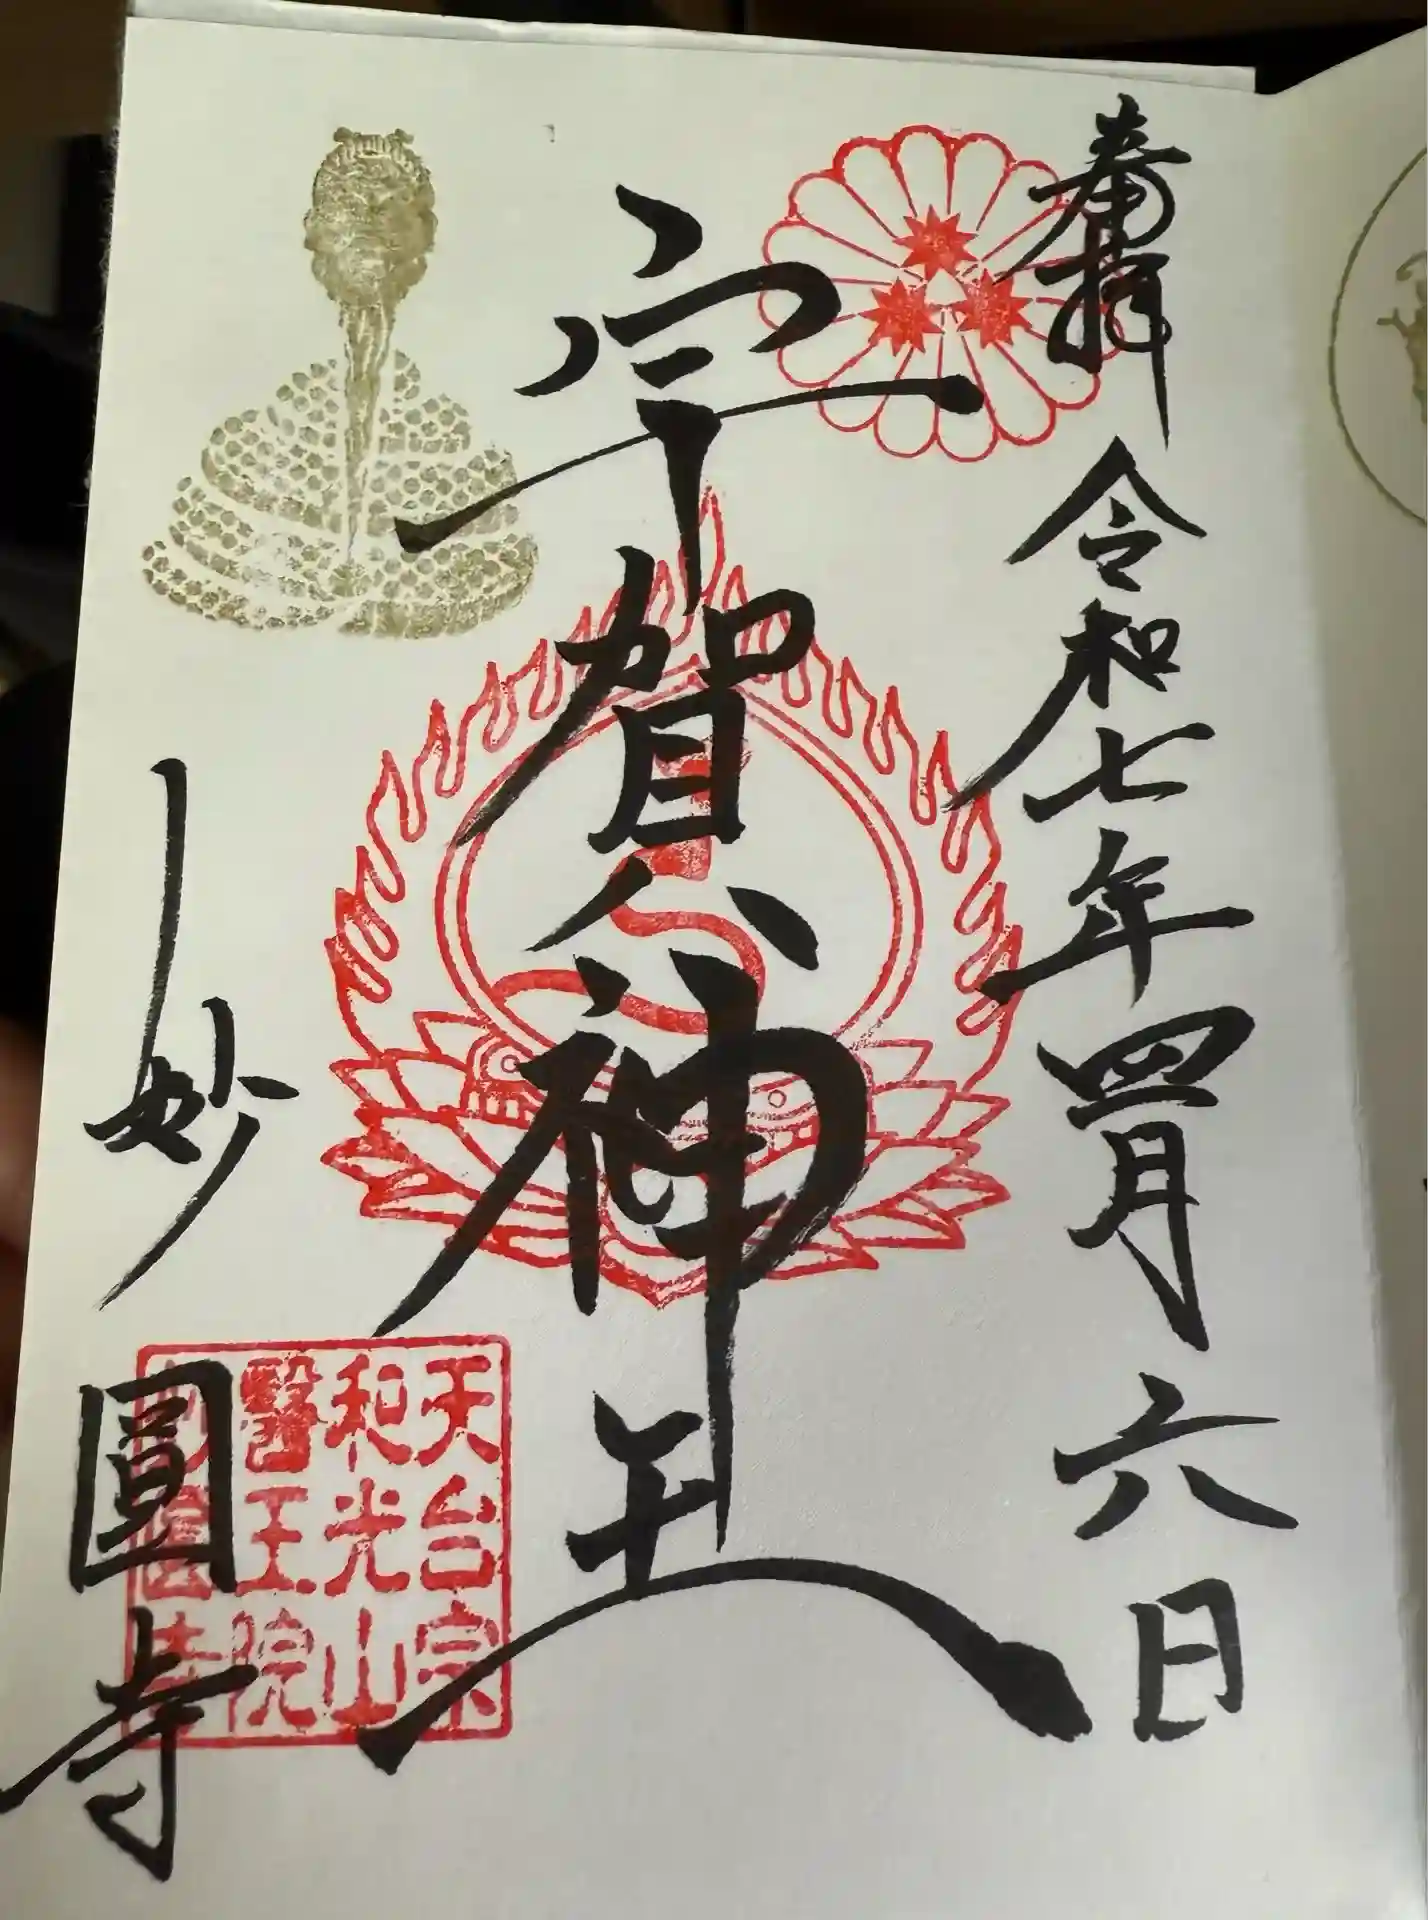 奉拝
令和七年四月六日
宇賀神王
妙圓寺
天台宗
和光山
醫王院
妙圓寺